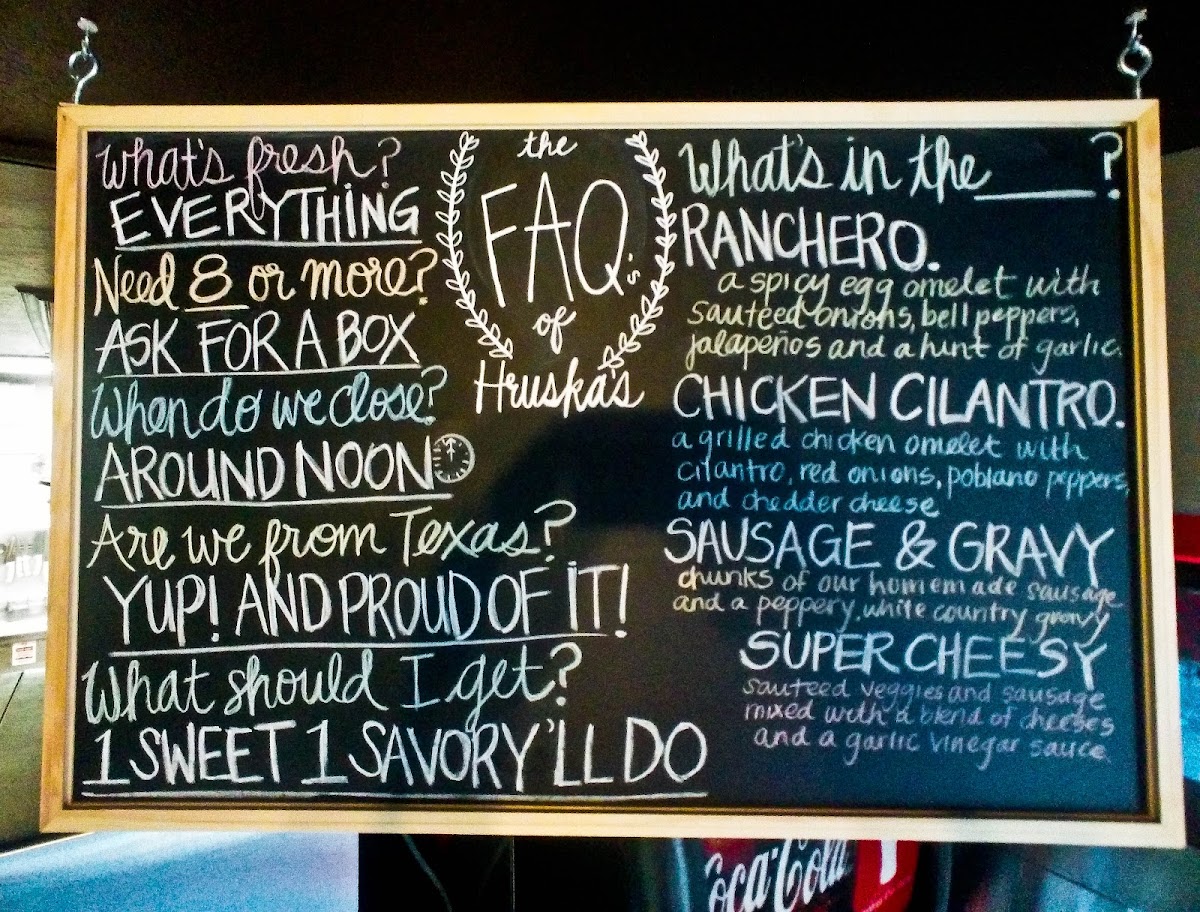 What's fresh?
EVERYTHING
Need 8 or more?
ASK FOR A BOX
When do we close?
AROUND NOON
Are we from Texas?
YUP! AND PROUD OF IT!
What should I get?
1 SWEET 1 SAVORY 'LL DO
the
FAQ's
of
Hruska's
What's in the ____?
RANCHERO.
a spicy egg omelet with
sauteed onions, bell peppers,
jalapeños and a hint of garlic.
CHICKEN CILANTRO.
a grilled chicken omelet with
cilantro, red onions, poblano peppers,
and chedder cheese
SAUSAGE & GRAVY
chunks of our homemade sausage
and a peppery, white country gravy
SUPER CHEESY
sauteed veggies and sausage
mixed with a blend of cheeses
and a garlic vinegar sauce.
Coca-Cola